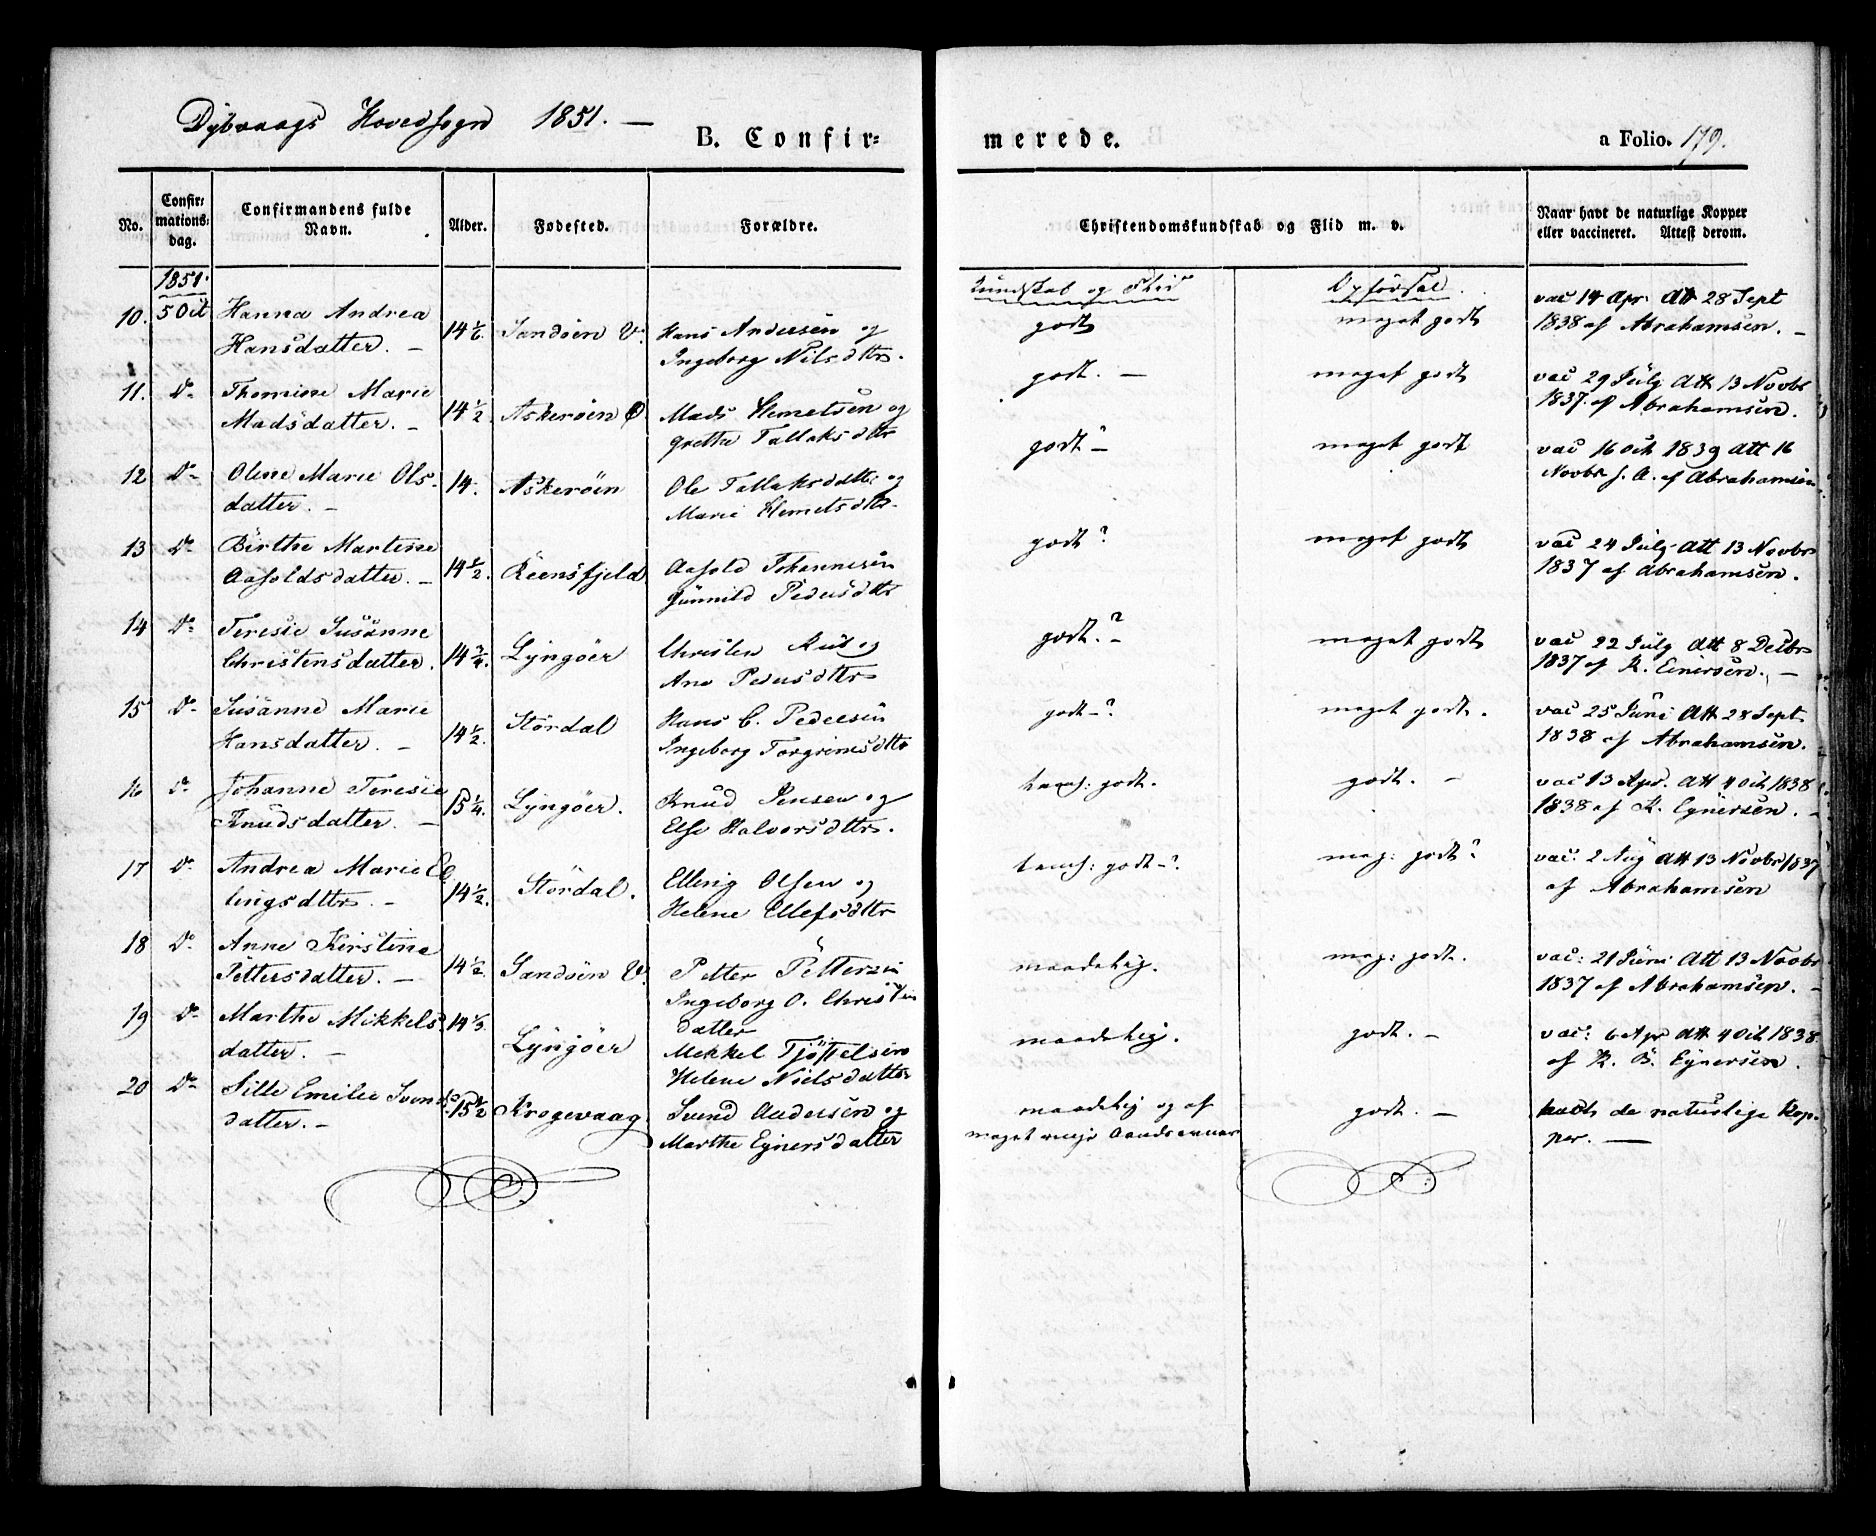 Dybvaags Hovedsogn 1851. —
B. Confir=
merede.
a Folio. 179.
No.
Confir=
mations=
dag.
Confirmandens fulde
Navn.
Alder.
Fødested.
Forældre.
Christendomskundskab og Flid m. v.
Naar havt de naturlige Kopper
eller vaccineret. Attest derom.
1851.
Kundskab og Flid
Opførsel.
10. 5 Oct Hanna Andrea
Hansdatter. — 14 1/6. Sandøen V. Hans Andersen og
Ingeborg Nilsdttr.
godt
meget godt
vac 14 Apr. Att 28 Sept
1838 af Abrahamsen. —
11. Do Thomine Marie
Madsdatter. — 14 1/2 Askerøen Mads Hemetsen og
Grethe Tallaksdttr
godt. —
meget godt
vac 29 July Att 13 Novbr
1837 af Abrahamsen.
12 Do Olene Marie Ols-
datter. — 14. Askerøen Ole Tallaksdttr og
Marie Hemetsdttr
godt —
meget godt
vac 16 Oct 1839 Att 16
Novbr s. A. af Abrahamsen
13 Do Birthe Martine
Aasoldsdatter. — 14 1/2. Reensfjeld Aasold Johannesen
Gunnild Pedersdttr
godt?
meget godt
vac 24 July Att 13 Novbr
1837 af Abrahamsen.
14 Do Teresie Susanne
Christensdatter. 14 3/4. Lyngøer Christen og
Ane Pedersdttr
godt.? —
meget godt
vac 22 July Att 8 Decbr
1837 af K. Einersen. —
15 Do Susanne Marie
Hansdatter. — 14 1/2. Stördal Hans C. Pedersen
Ingeborg Torgrimsdttr
godt —?
meget godt.
vac 25 Juni Att 28 Sept
1838 af Abrahamsen.
16 Do Johanne Teresie
Knudsdatter. — 15 1/4. Lyngøer. Knud Jensen og
Else Halvorsdttr.
temf: godt.
godt. —
vac 13 Apr. Att 4 Oct 1838
1838 af K. Eynersen. —
17 Do Andrea Marie El
lingsdttr. — 14 1/2. Stördal. Elling Olsen og
Helene Ellefsdttr
temf: godt —?
meg: godt?
vac: 2 Aug Att 13 Novbr 1837
af Abrahamsen
18 Do Anne Kirstine
Pettersdatter. — 14 1/2. Sandøen V. Petter Pettersen
Ingeborg O. Christen
datter
maadelig.
meg: godt.
vac: 21 Juni Att 13 Novbr
1837 af Abrahamsen. —
19 Do Marthe Mikkels
datter. — 14 1/3. Lyngøer Mekkel Tjøstelsen
Helene Nielsdatter
maadelig.
godt. —
vac: 6 Apr Att 4 Oct 1838
af K. B. Eynersen.
20 Do Sille Emilie Svends
datter. — 15 1/2 Krogevaag Svend Andersen og
Marthe Eynersdatter
maadelig og af
meget ringe Aandsevner
godt. —
havt de naturlige Kop-
per. —